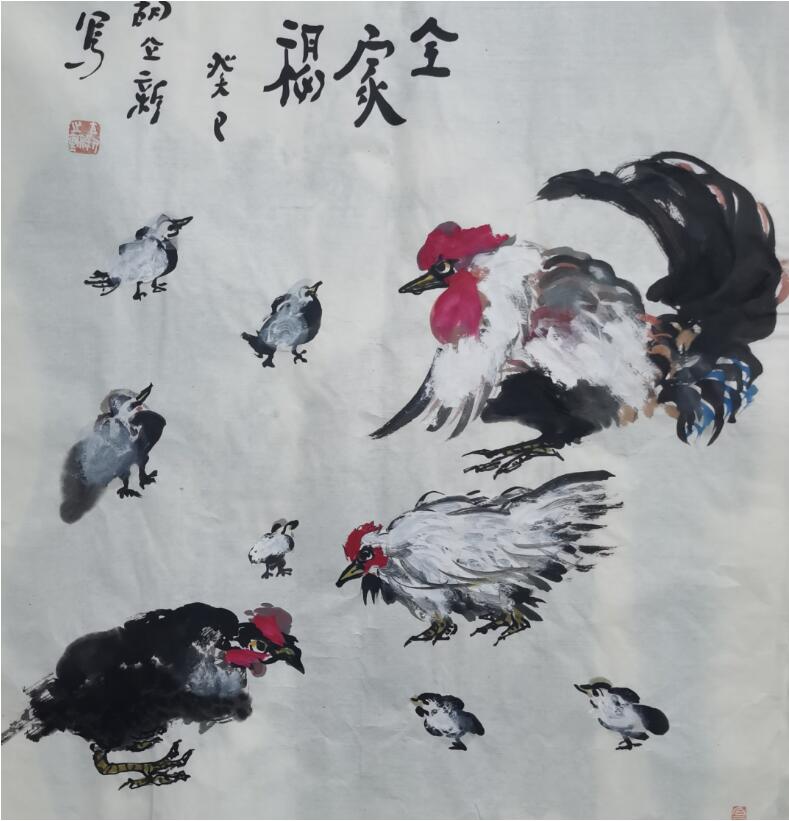 全家福
癸巳
胡企新
写